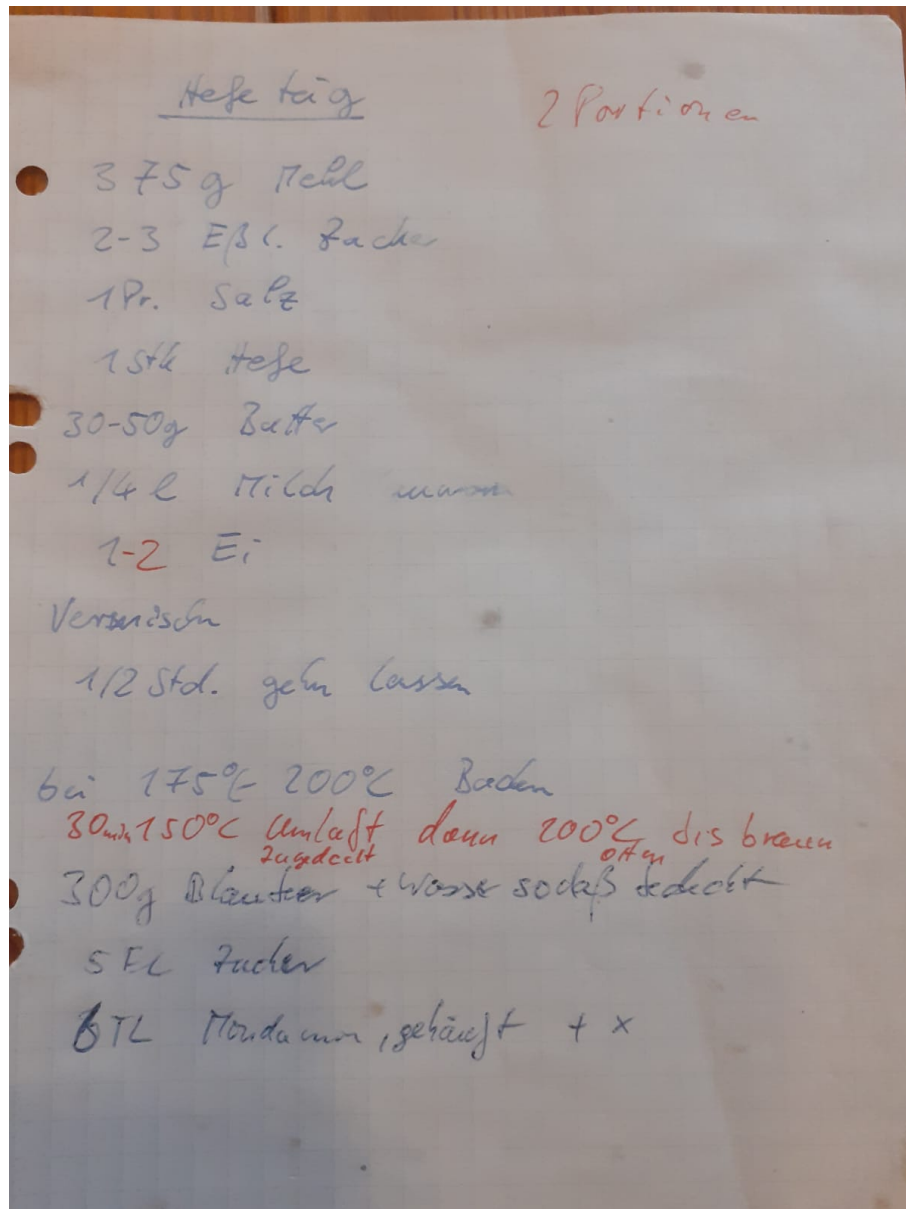 Hefeteig
2 Portionen
375g Mehl
2-3 Eßl. Zucker
1Pr. Salz
1 Stk Hefe
30-50g Butter
1/4 l Milch warm
1-2 Ei
Vermischn
1/2 Std. gehn lassen
bei 175°C-200°C Backen
30min 150°C Umluft dann 200°C bis braun
zugedeckt offen
300g Blaubeer + Wasser sodaß bedeckt
5 EL Zucker
6TL Mondamin, gehäuft + x